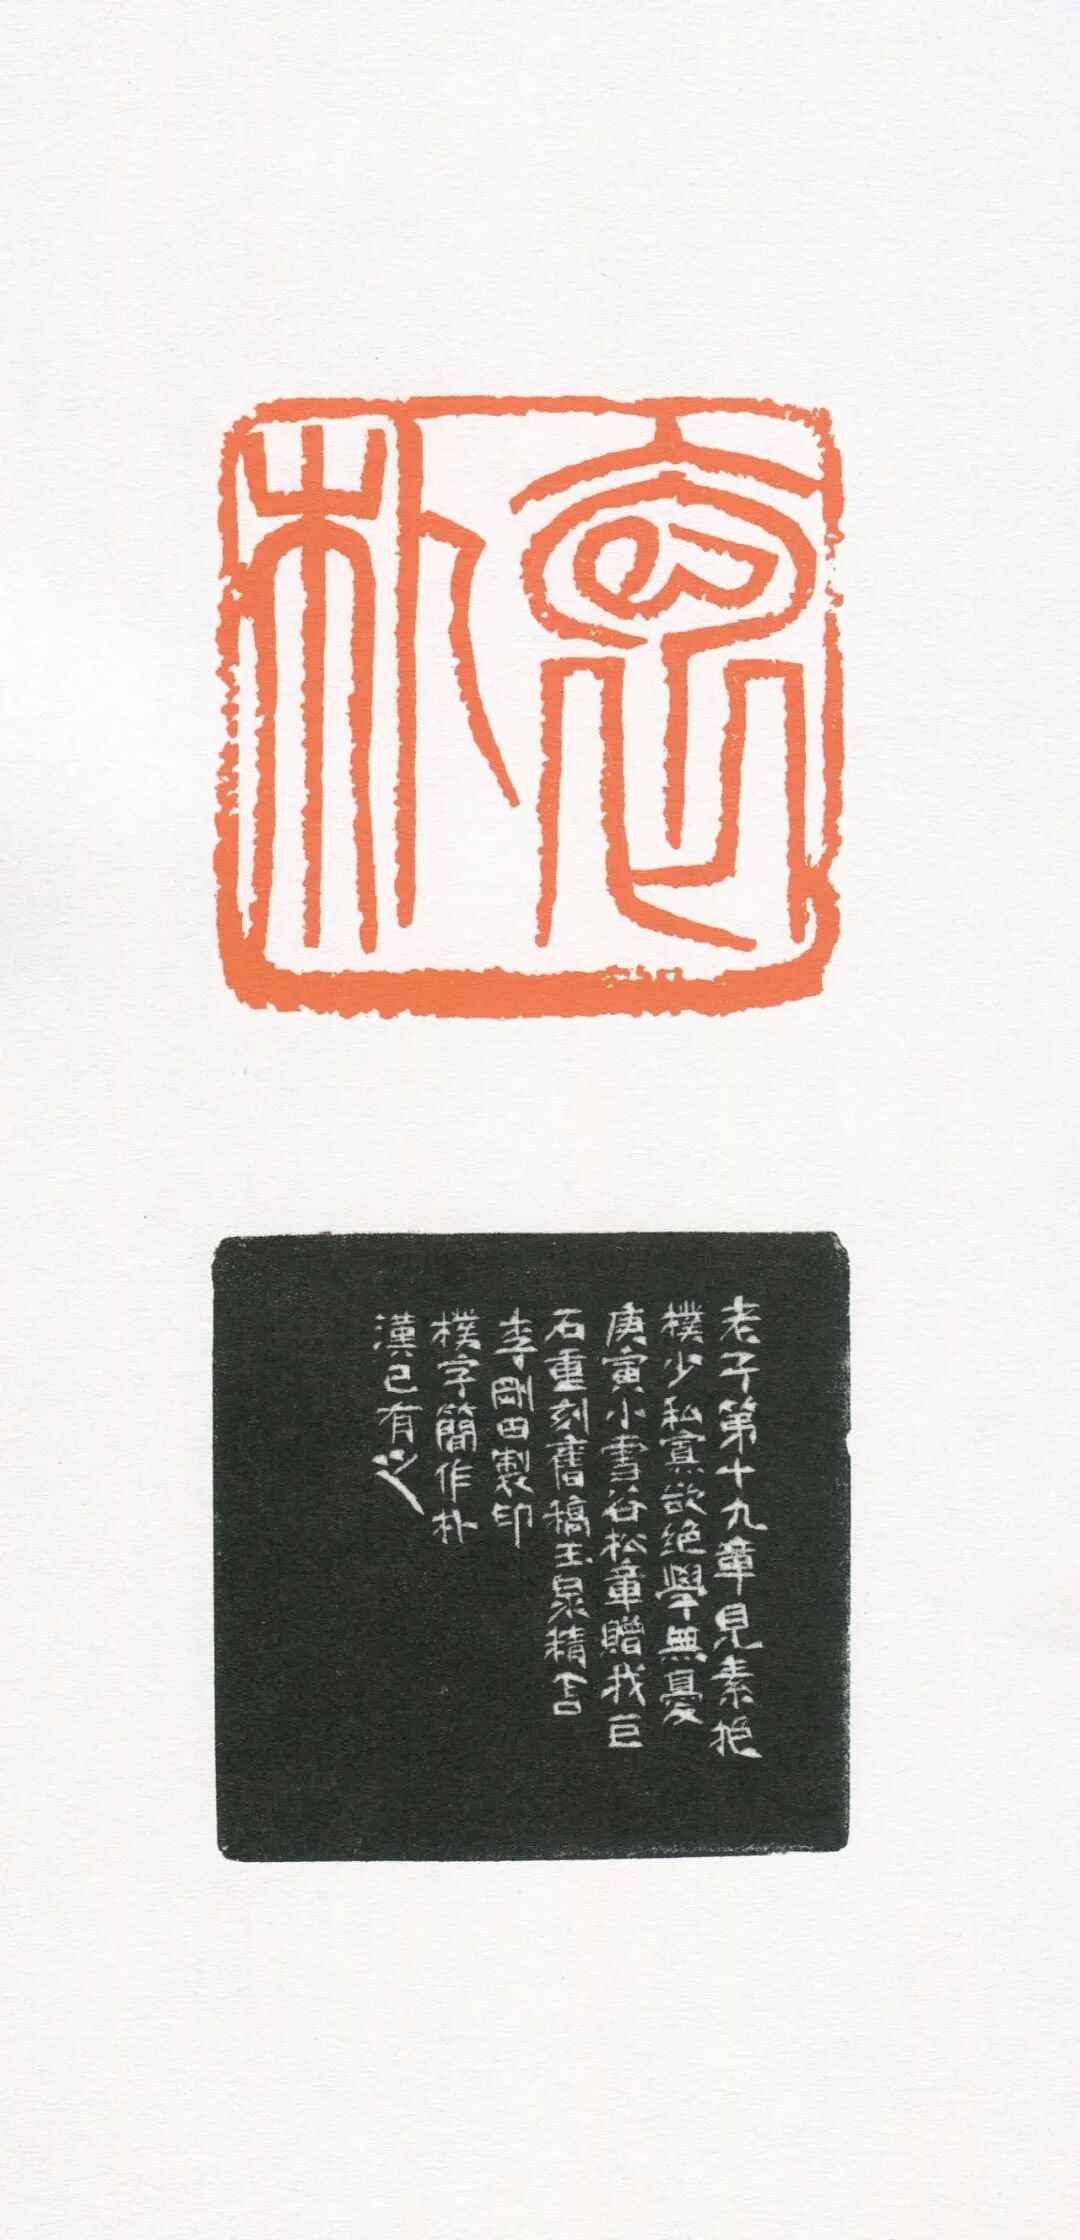 袌朴
老子第十九章見素抱
樸少私寡欲絕學無憂
庚寅小雪谷松章贈我巨
石重刻舊稿玉泉精舍
李剛田製印
樸字簡作朴
漢已有之